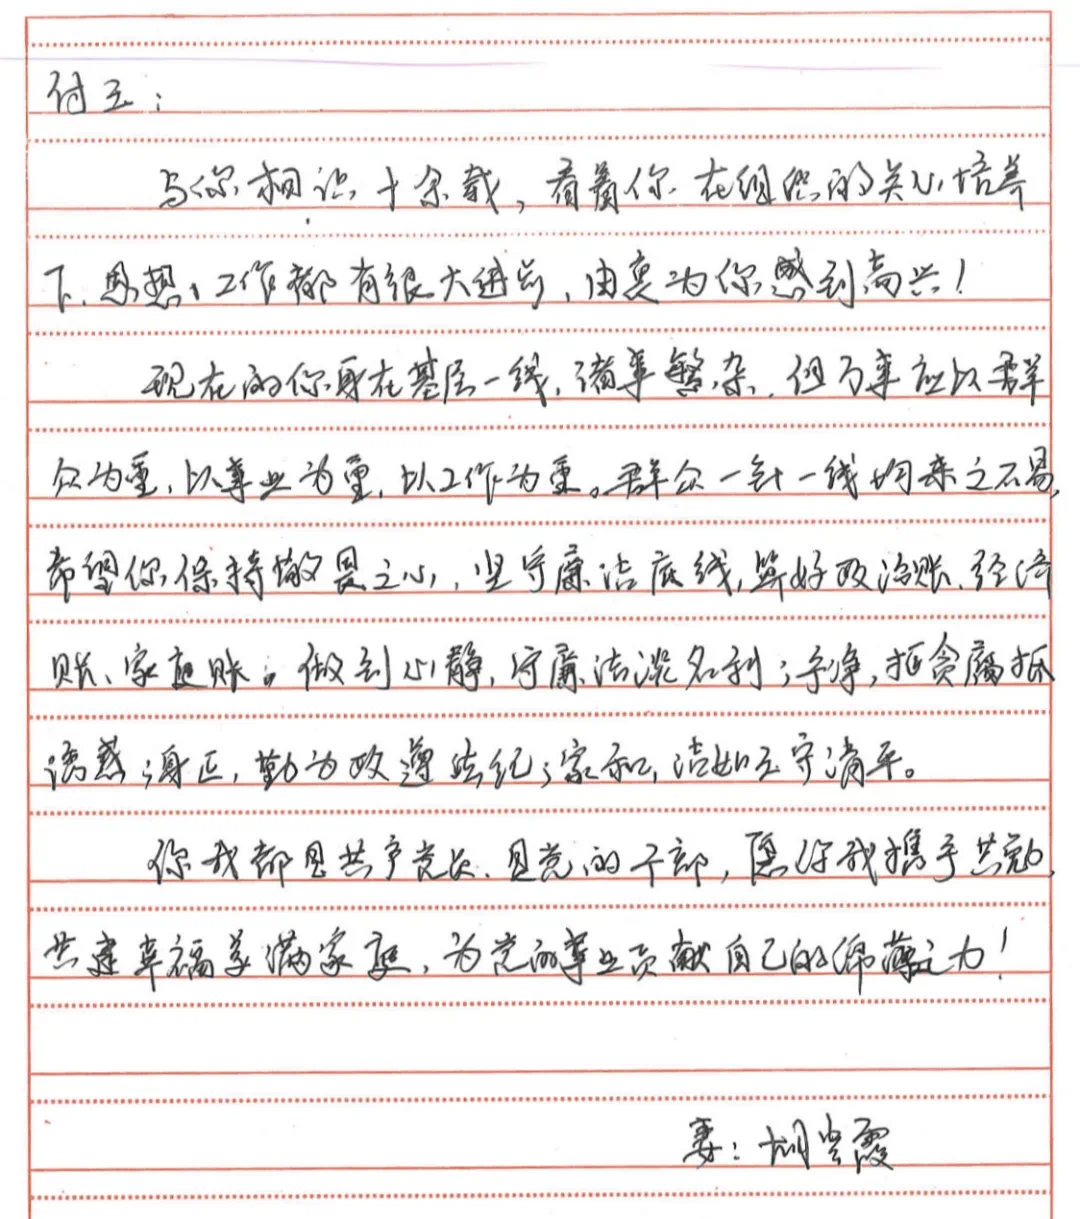 付玉：
与你相识十余载，看着你在组织的关心培养
下，思想、工作都有很大进步，由衷为你感到高兴！
现在的你身在基层一线，诸事繁杂，但万事应以群
众为重，以事业为重，以工作为重。群众一针一线均来之不易，
希望你保持敬畏之心，坚守廉洁底线，算好政治账、经济
账、家庭账。做到心静，守廉洁淡名利；手净，拒贪腐抵
诱惑；身正，勤为政遵法纪；家和，洁如玉守清平。
你我都是共产党员，是党的干部，愿你我携手共勉，
共建幸福美满家庭，为党的事业贡献自己的绵薄之力！
妻：胡 霞